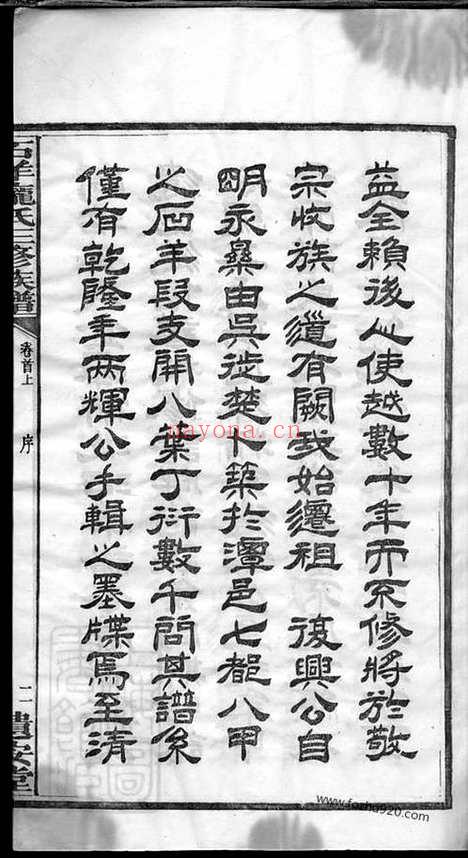 益全賴後人使越數十年而不修將於敬
宗收族之道有闕我始遷祖　復興公自
明永樂由吳徙楚卜築於潭邑七都八甲
之石羊段支開八葉丁衍數千問其譜系
僅有乾隆年兩輝公手輯之墨牒焉至清
石羊龐氏三修族譜
卷首上
序
二
遺安堂
nayona.cn
www.fozhu920.com